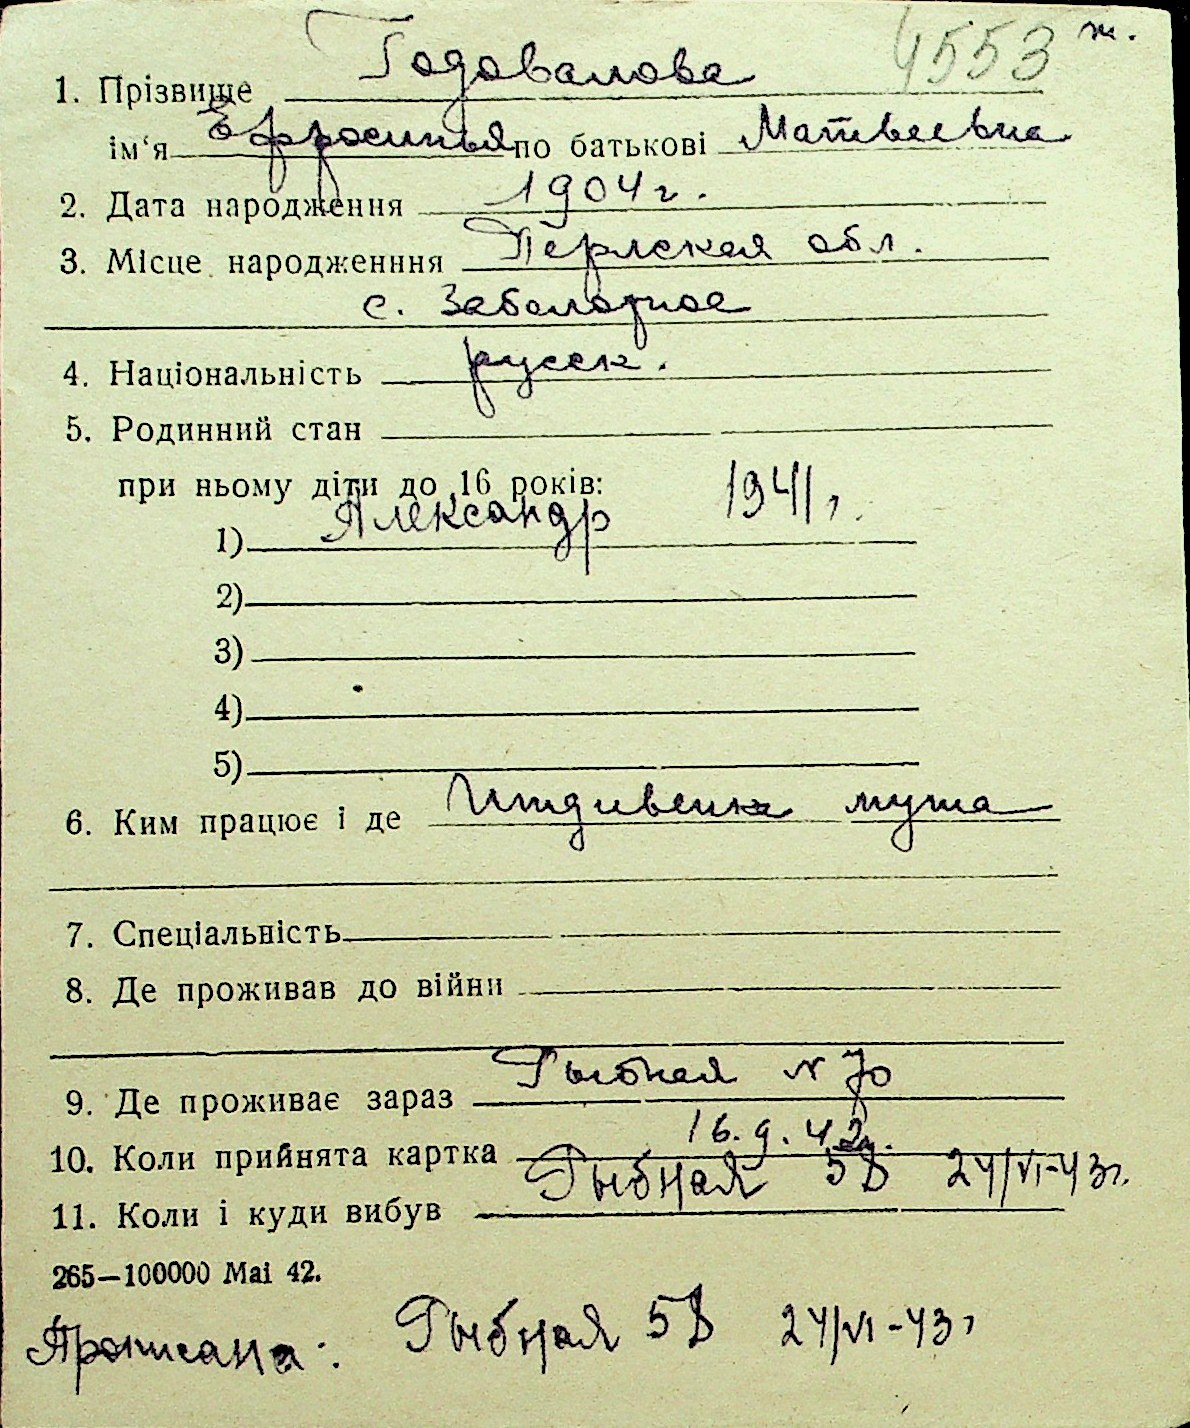 4553 ж.
1. Прізвище Годовалова
ім‘я Ефросинья по батькові Матвеевна
2. Дата народження 1904 г.
3. Місце народженння Пермская обл.
с. Заболотное
4. Національність русск.
5. Родинний стан
при ньому діти до 16 років:
1) Александр 1941 г.
2)
3)
4)
5)
6. Ким працює і де Иждивенка мужа
7. Спеціальність
8. Де проживав до війни
9. Де проживає зараз Рыбная № 70
10. Коли прийнята картка 16.9.42г.
11. Коли і куди вибув Рыбная 5В 24/VI-43г.
265—100000 Mai 42.
Прописана: Рыбная 5В 24/VI-43г